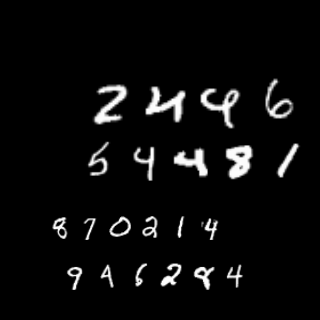 2496
54481
870214
946284